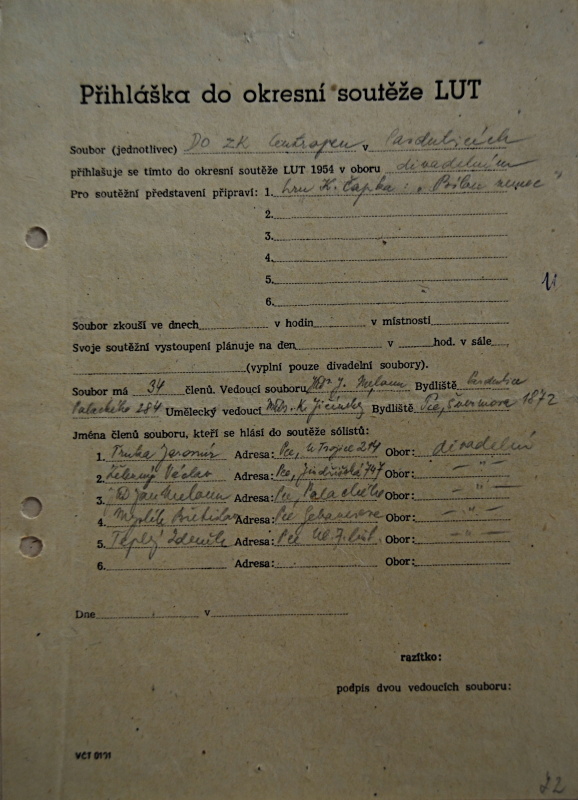 Přihláška do okresní soutěže LUT
Soubor (jednotlivec) DO ZK Centropen v Pardubicích
přihlašuje se tímto do okresní soutěže LUT 1954 v oboru divadelním
Pro soutěžní představení připraví: 1. hru K. Čapka: „Bílou nemoc"
2.
3.
4.
5.
6.
Soubor zkouší ve dnech v hodin v místnosti
Svoje soutěžní vystoupení plánuje na den v hod. v sále,
(vyplní pouze divadelní soubory).
Soubor má 34 členů. Vedoucí souboru J. Bydliště Pardubice
Palackého 284 Umělecký vedoucí K. Jičínský Bydliště Pce, Švermova 1872
Jména členů souboru, kteří se hlásí do soutěže sólistů:
1. Truka Jaromír Adresa: Pce, U Trojice 214 Obor: divadelní
2. Železný Václav Adresa: Pce, Jindřišská 747 Obor: — " —
3. Jan Adresa: Pce, Palackého Obor: — " —
4. Břetislav Adresa: Pce Obor: — " —
5. Teplý Zdeněk Adresa: Pce Obor: — " —
6. Adresa: Obor:
Dne v
razítko:
podpis dvou vedoucích souboru:
VCT 0191